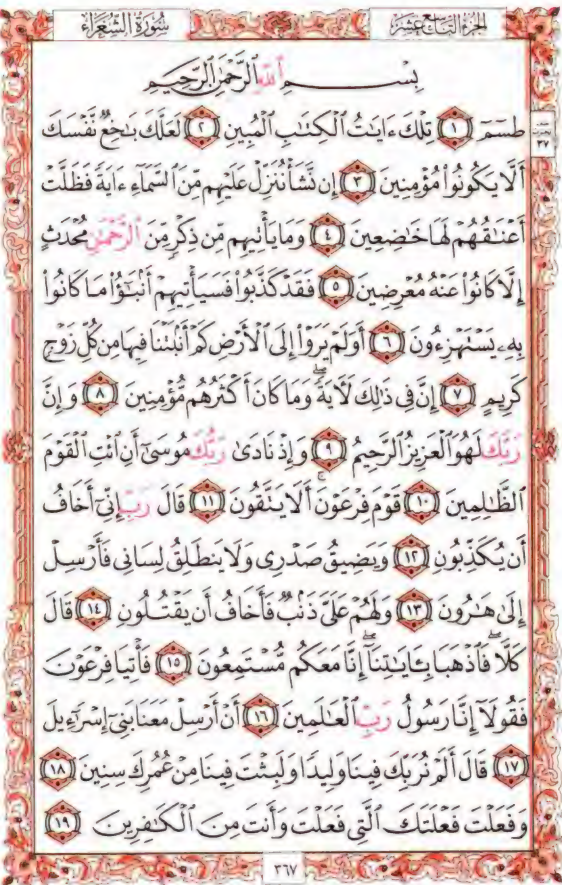 الجزء التاسع عشر
سُورَةُ الشُّعَرَاءِ
بِسْمِ ٱللَّهِ ٱلرَّحْمَٰنِ ٱلرَّحِيمِ
طسٓمٓ ١ تِلْكَ ءَايَٰتُ ٱلْكِتَٰبِ ٱلْمُبِينِ ٢ لَعَلَّكَ بَٰخِعٌ نَّفْسَكَ
أَلَّا يَكُونُوا۟ مُؤْمِنِينَ ٣ إِن نَّشَأْ نُنَزِّلْ عَلَيْهِم مِّنَ ٱلسَّمَآءِ ءَايَةً فَظَلَّتْ
أَعْنَٰقُهُمْ لَهَا خَٰضِعِينَ ٤ وَمَا يَأْتِيهِم مِّن ذِكْرٍ مِّنَ ٱلرَّحْمَٰنِ مُحْدَثٍ
إِلَّا كَانُوا۟ عَنْهُ مُعْرِضِينَ ٥ فَقَدْ كَذَّبُوا۟ فَسَيَأْتِيهِمْ أَنۢبَٰٓؤُا۟ مَا كَانُوا۟
بِهِۦ يَسْتَهْزِءُونَ ٦ أَوَلَمْ يَرَوْا۟ إِلَى ٱلْأَرْضِ كَمْ أَنۢبَتْنَا فِيهَا مِن كُلِّ زَوْجٍ
كَرِيمٍ ٧ إِنَّ فِى ذَٰلِكَ لَءَايَةً ۖ وَمَا كَانَ أَكْثَرُهُم مُّؤْمِنِينَ ٨ وَإِنَّ
رَبَّكَ لَهُوَ ٱلْعَزِيزُ ٱلرَّحِيمُ ٩ وَإِذْ نَادَىٰ رَبُّكَ مُوسَىٰٓ أَنِ ٱئْتِ ٱلْقَوْمَ
ٱلظَّٰلِمِينَ ١٠ قَوْمَ فِرْعَوْنَ ۚ أَلَا يَتَّقُونَ ١١ قَالَ رَبِّ إِنِّىٓ أَخَافُ
أَن يُكَذِّبُونِ ١٢ وَيَضِيقُ صَدْرِى وَلَا يَنطَلِقُ لِسَانِى فَأَرْسِلْ
إِلَىٰ هَٰرُونَ ١٣ وَلَهُمْ عَلَىَّ ذَنۢبٌ فَأَخَافُ أَن يَقْتُلُونِ ١٤ قَالَ
كَلَّا ۖ فَٱذْهَبَا بِـَٔايَٰتِنَآ ۖ إِنَّا مَعَكُم مُّسْتَمِعُونَ ١٥ فَأْتِيَا فِرْعَوْنَ
فَقُولَآ إِنَّا رَسُولُ رَبِّ ٱلْعَٰلَمِينَ ١٦ أَنْ أَرْسِلْ مَعَنَا بَنِىٓ إِسْرَٰٓءِيلَ
١٧ قَالَ أَلَمْ نُرَبِّكَ فِينَا وَلِيدًا وَلَبِثْتَ فِينَا مِنْ عُمُرِكَ سِنِينَ ١٨
وَفَعَلْتَ فَعْلَتَكَ ٱلَّتِى فَعَلْتَ وَأَنتَ مِنَ ٱلْكَٰفِرِينَ ١٩
٣٦٧